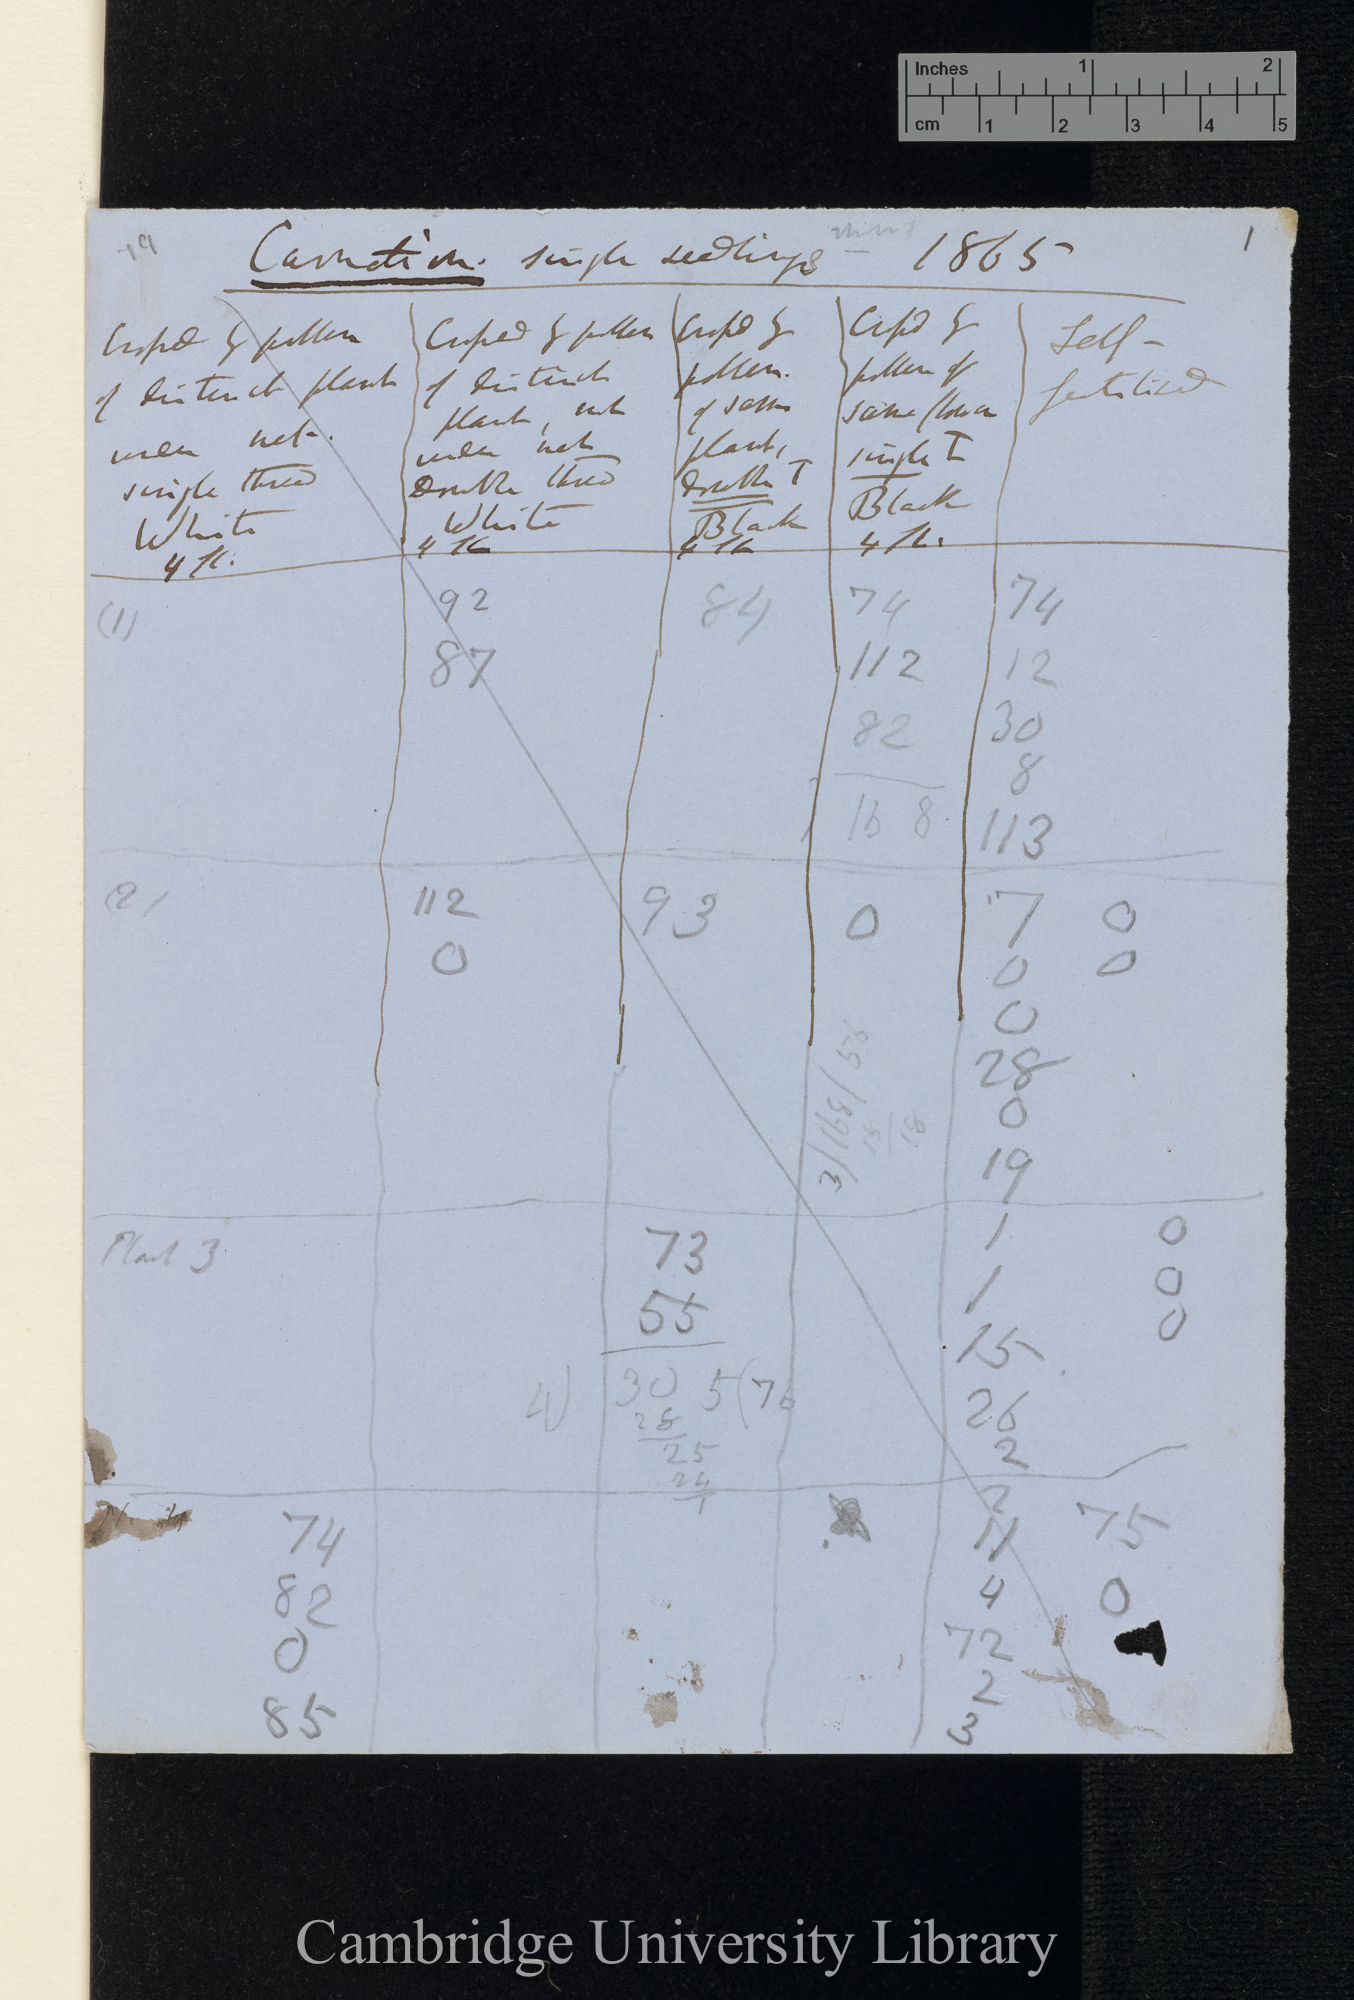 Inches 1 2
cm 1 2 3 4 5
79
1
Carnation. single seedlings 1865
Crossed by pollen
of distinct plant
under net.
single thread
White
4 fl.
Crossed by pollen
of distinct
plant, not
under net
Double thread
White
4 fl
Crossd by
pollen.
of same
plant,
double T
Black
4 fl
Crossd by
pollen of
same flower
single T
Black
4 fl.
Self-
fertilised
(1)
92
87
84
74
112
82
168
74
12
30
8
113
(2)
112
0
93
0
3)168/56
15
18
7 0
0 0
0
28
0
19
Plant 3
73
55
4) 305(76
28
25
24
1
1 0
1 0
15 0
26
2
74
82
0
85
2
11 75
4 0
72
2
3
Cambridge University Library